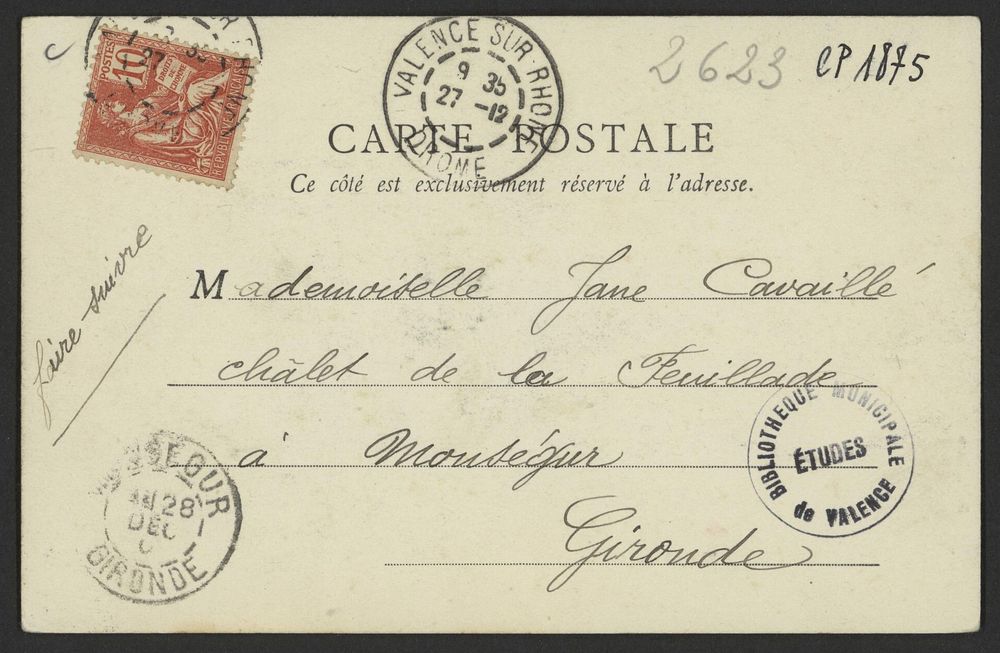 POSTES
10
DROITS DE L'HOMME
REPUBLIQUE FRANCAISE
VALENCE SUR RHONE
9 35
27 -12
DROME
2623
CP 1875
CARTE POSTALE
Ce côté est exclusivement réservé à l'adresse.
faire suivre
Mademoiselle Jane Cavaillé
châlet de la Feuillade
à Monségur
Gironde
MONSEGUR
28
DEC
GIRONDE
BIBLIOTHEQUE MUNICIPALE
ÉTUDES
de VALENCE